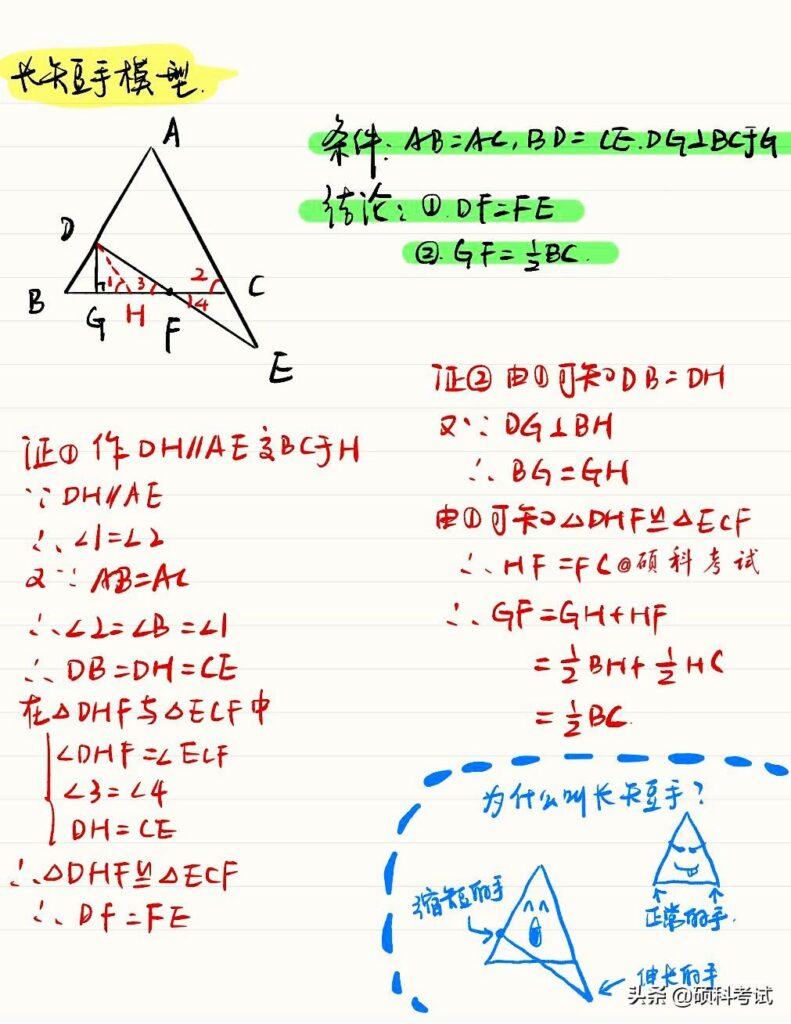 长短手模型.
条件: AB=AC, BD=CE. DG⊥BC于G
结论: ①. DF=FE
②. GF=½BC.
A
D
B
G
H
F
C
E
1
3
2
4
证① 作DH∥AE交BC于H
∵DH∥AE
∴∠1=∠2
又∵AB=AC
∴∠2=∠B=∠1
∴DB=DH=CE
在△DHF与△ECF中
∠DHF=∠ECF
∠3=∠4
DH=CE
∴△DHF≌△ECF
∴DF=FE
证② 由①可知DB=DH
又∵DG⊥BH
∴BG=GH
由①可知△DHF≌△ECF
∴HF=FC@硕科考试
∴GF=GH+HF
=½BH+½HC
=½BC.
为什么叫长短手?
缩短的手
正常的手.
伸长的手
头条 @硕科考试